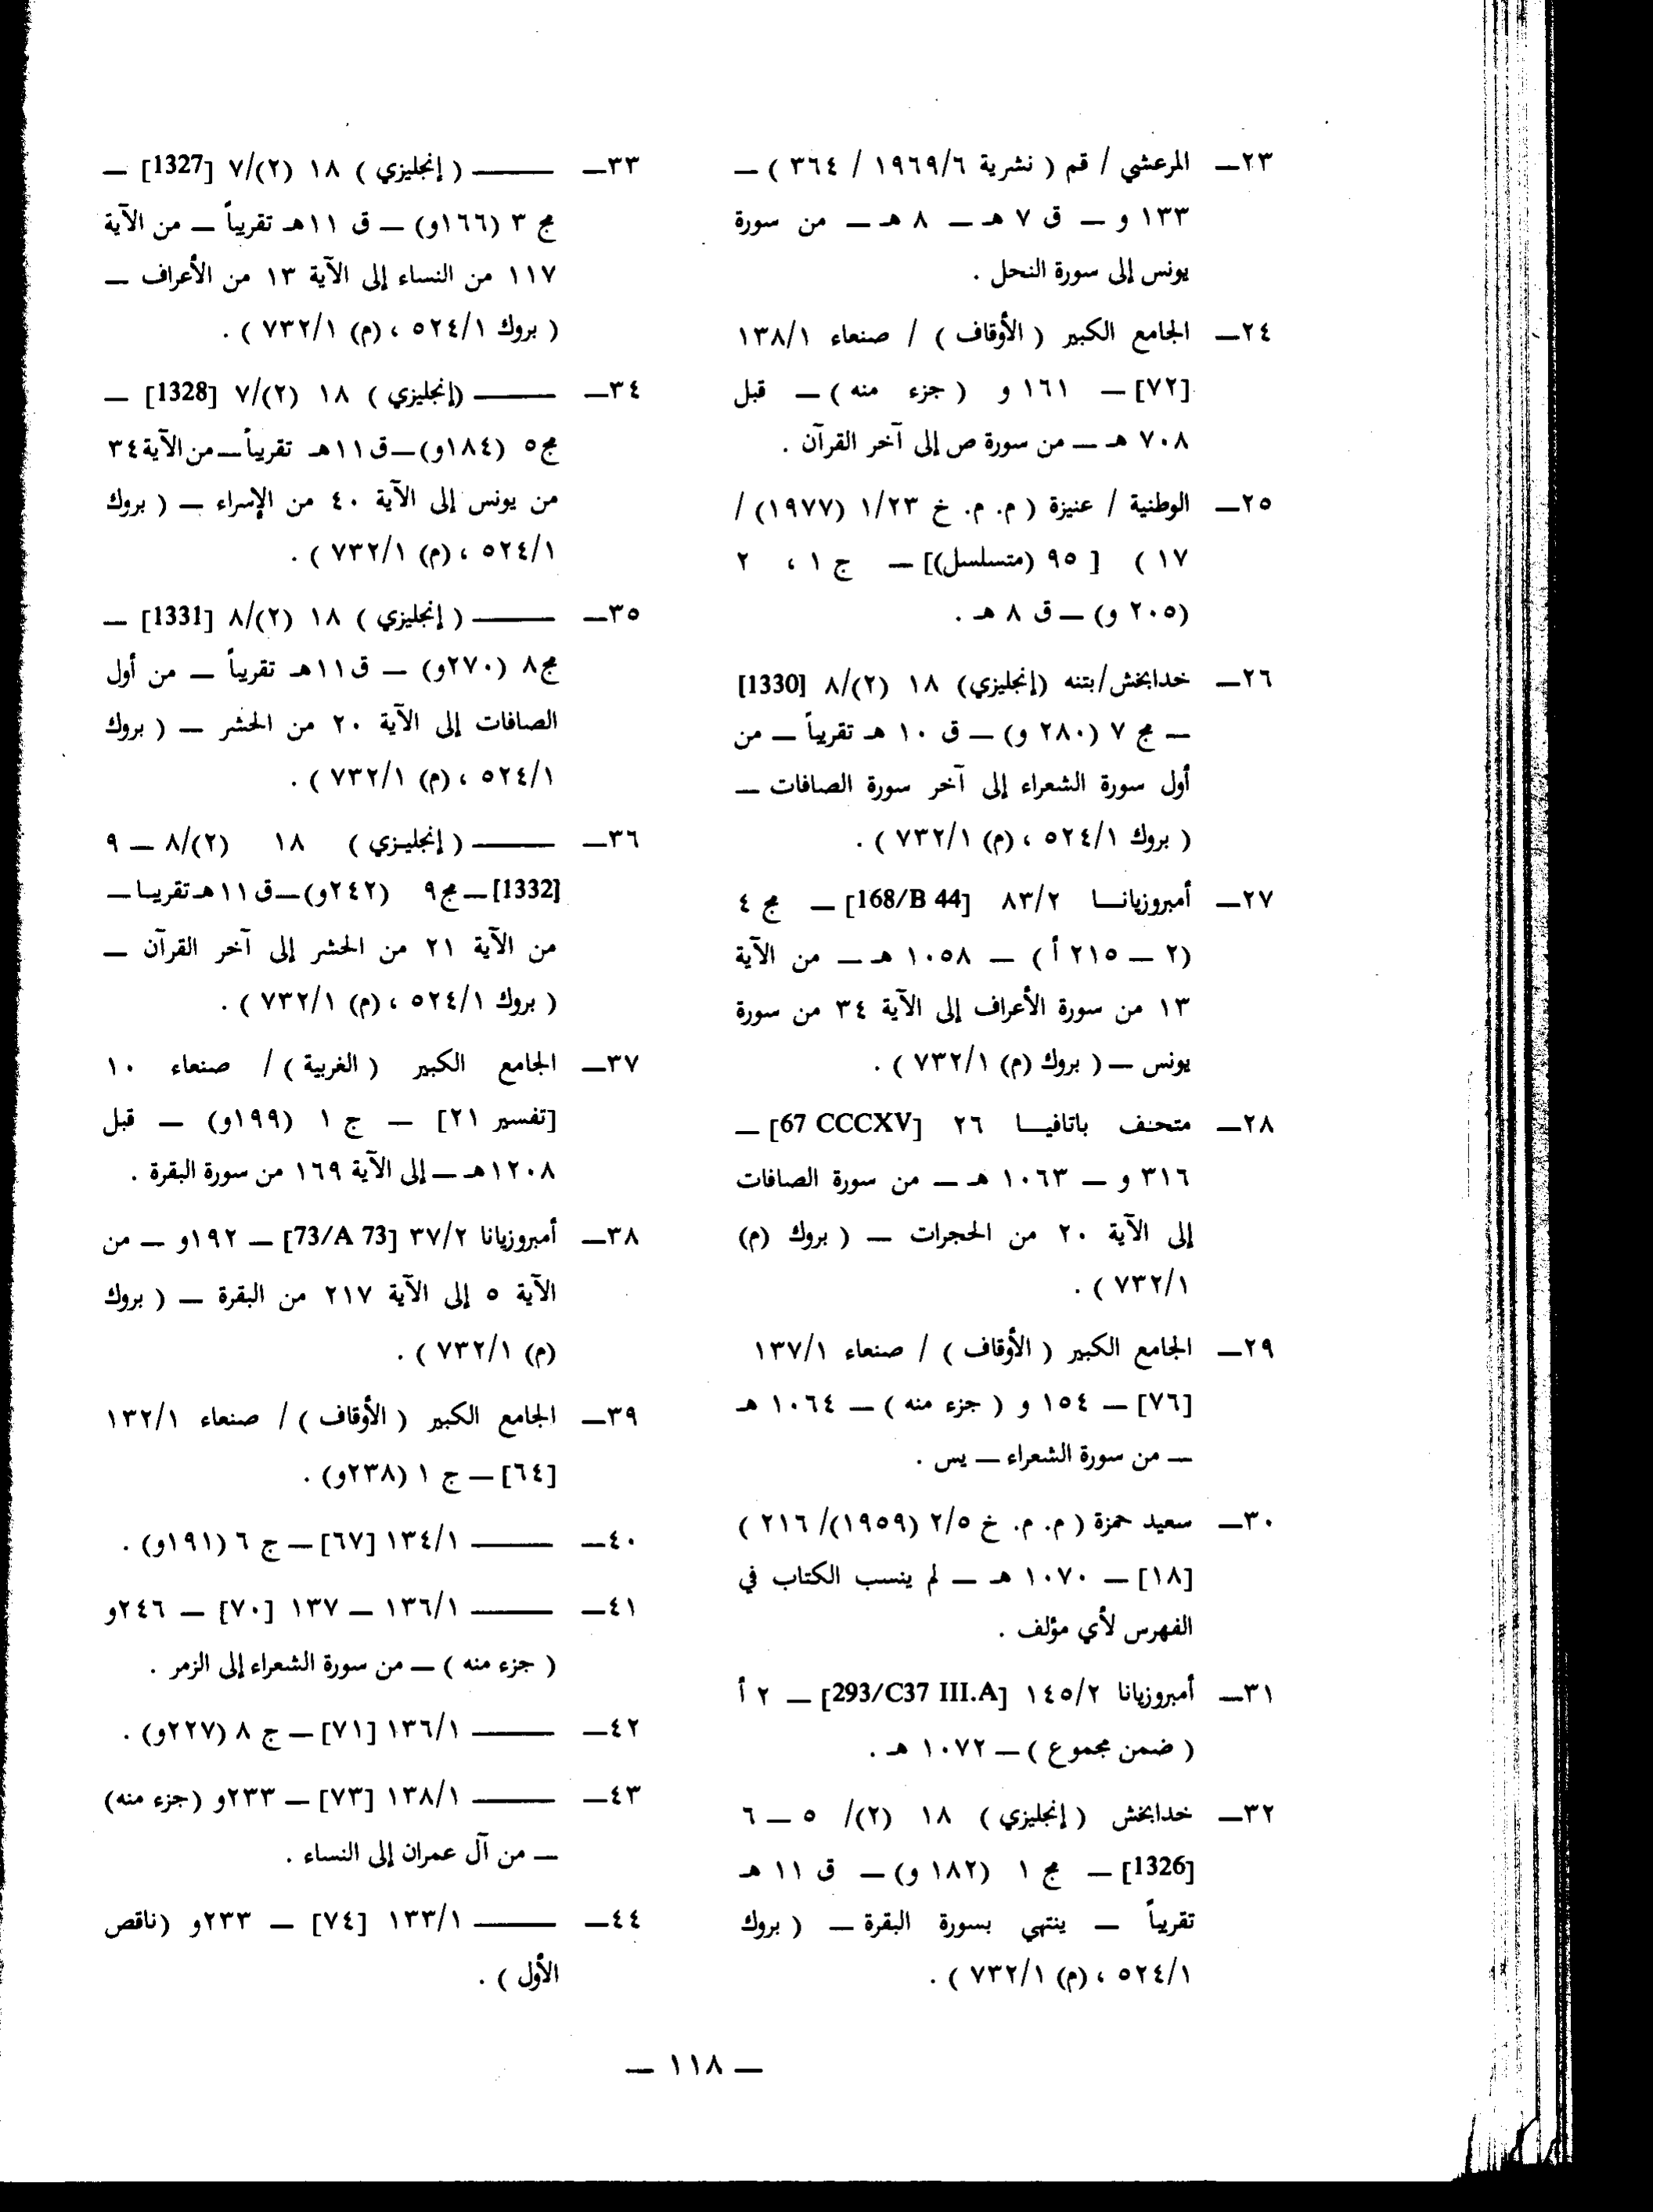 ٢٣ــ المرعشي / قم ( نشرية ١٩٦٩/٦ / ٣٦٤ ) ــ
١٣٣ و ــ ق ٧ هـ ــ ٨ هـ ــ من سورة
يونس إلى سورة النحل .
٢٤ــ الجامع الكبير ( الأوقاف ) / صنعاء ١٣٨/١
[٧٢] ــ ١٦١ و ( جزء منه ) ــ قبل
٧٠٨ هـ ــ من سورة ص إلى آخر القرآن .
٢٥ــ الوطنية / عنيزة ( م. م. خ ١/٢٣ (١٩٧٧) /
١٧ ) [ ٩٥ (متسلسل)] ــ ج ١ ، ٢
(٢٠٥ و) ــ ق ٨ هـ .
٢٦ــ خدابخش/بتنه (إنجليزي) ١٨ (٢)/٨ [1330]
ــ مج ٧ (٢٨٠ و) ــ ق ١٠ هـ تقريباً ــ من
أول سورة الشعراء إلى آخر سورة الصافات ــ
( بروك ٥٢٤/١ ، (م) ٧٣٢/١ ) .
٢٧ــ أمبروزيانــا ٨٣/٢ [168/B 44] ــ مج ٤
(٢ ــ ٢١٥ أ ) ــ ١٠٥٨ هـ ــ من الآية
١٣ من سورة الأعراف إلى الآية ٣٤ من سورة
يونس ــ ( بروك (م) ٧٣٢/١ ) .
٢٨ــ متحف باتافيــا ٢٦ [67 CCCXV] ــ
٣١٦ و ــ ١٠٦٣ هـ ــ من سورة الصافات
إلى الآية ٢٠ من الحجرات ــ ( بروك (م)
٧٣٢/١ ) .
٢٩ــ الجامع الكبير ( الأوقاف ) / صنعاء ١٣٧/١
[٧٦] ــ ١٥٤ و ( جزء منه ) ــ ١٠٦٤ هـ
ــ من سورة الشعراء ــ يس .
٣٠ــ سعيد حمزة ( م. م. خ ٢/٥ (١٩٥٩)/ ٢١٦ )
[١٨] ــ ١٠٧٠ هـ ــ لم ينسب الكتاب في
الفهرس لأي مؤلف .
٣١ــ أمبروزيانا ١٤٥/٢ [293/C37 III.A] ــ ٢ أ
( ضمن مجموع ) ــ ١٠٧٢ هـ .
٣٢ــ خدابخش ( إنجليزي ) ١٨ (٢)/ ٥ ــ ٦
[1326] ــ مج ١ (١٨٢ و) ــ ق ١١ هـ
تقريباً ــ ينتهي بسورة البقرة ــ ( بروك
٥٢٤/١ ، (م) ٧٣٢/١ ) .
٣٣ــ ــــــ ( إنجليزي ) ١٨ (٢)/٧ [1327] ــ
مج ٣ (١٦٦و) ــ ق ١١هـ تقريباً ــ من الآية
١١٧ من النساء إلى الآية ١٣ من الأعراف ــ
( بروك ٥٢٤/١ ، (م) ٧٣٢/١ ) .
٣٤ــ ــــــ (إنجليزي ) ١٨ (٢)/٧ [1328] ــ
مج٥ (١٨٤و)ــ ق١١هـ تقريباًــ من الآية٣٤
من يونس إلى الآية ٤٠ من الإسراء ــ ( بروك
٥٢٤/١ ، (م) ٧٣٢/١ ) .
٣٥ــ ــــــ ( إنجليزي ) ١٨ (٢)/٨ [1331] ــ
مج٨ (٢٧٠و) ــ ق١١هـ تقريباً ــ من أول
الصافات إلى الآية ٢٠ من الحشر ــ ( بروك
٥٢٤/١ ، (م) ٧٣٢/١ ) .
٣٦ــ ــــــ ( إنجليزي ) ١٨ (٢)/٨ ــ ٩
[1332] ــ مج٩ (٢٤٢و)ــ ق١١هـ تقريبـا ــ
من الآية ٢١ من الحشر إلى آخر القرآن ــ
( بروك ٥٢٤/١ ، (م) ٧٣٢/١ ) .
٣٧ــ الجامع الكبير ( الغربية ) / صنعاء ١٠
[تفسير ٢١] ــ ج ١ (١٩٩و) ــ قبل
١٢٠٨هـ ــ إلى الآية ١٦٩ من سورة البقرة .
٣٨ــ أمبروزيانا ٣٧/٢ [73/A 73] ــ ١٩٢و ــ من
الآية ٥ إلى الآية ٢١٧ من البقرة ــ ( بروك
(م) ٧٣٢/١ ) .
٣٩ــ الجامع الكبير ( الأوقاف ) / صنعاء ١٣٢/١
[٦٤] ــ ج ١ (٢٣٨و) .
٤٠ــ ــــــ ١٣٤/١ [٦٧] ــ ج ٦ (١٩١و) .
٤١ــ ــــــ ١٣٦/١ ــ ١٣٧ [٧٠] ــ ٢٤٦و
( جزء منه ) ــ من سورة الشعراء إلى الزمر .
٤٢ــ ــــــ ١٣٦/١ [٧١] ــ ج ٨ (٢٢٧و) .
٤٣ــ ــــــ ١٣٨/١ [٧٣] ــ ٢٣٣و (جزء منه)
ــ من آل عمران إلى النساء .
٤٤ــ ــــــ ١٣٣/١ [٧٤] ــ ٢٣٣و (ناقص
الأول ) .
ــ ١١٨ ــ